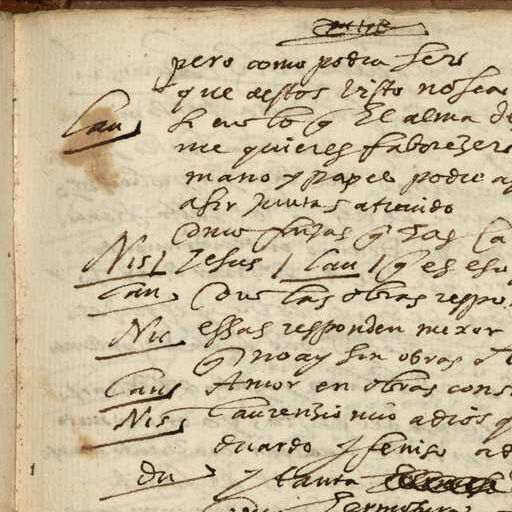 pero como podra ser
que destos visto no sea
Lau si en lo q El alma de
me quieres faborezer
mano y papel podre a
asir juntas atreuido
como
Nis Jesus Lau q es eso
Lau Con las obras respo
Nis essas responden mexor
q no ay sin obras
Lau Amor en obras cons
Nis Laurenzio mio adios q
duardo y feniso ad
du y tanta